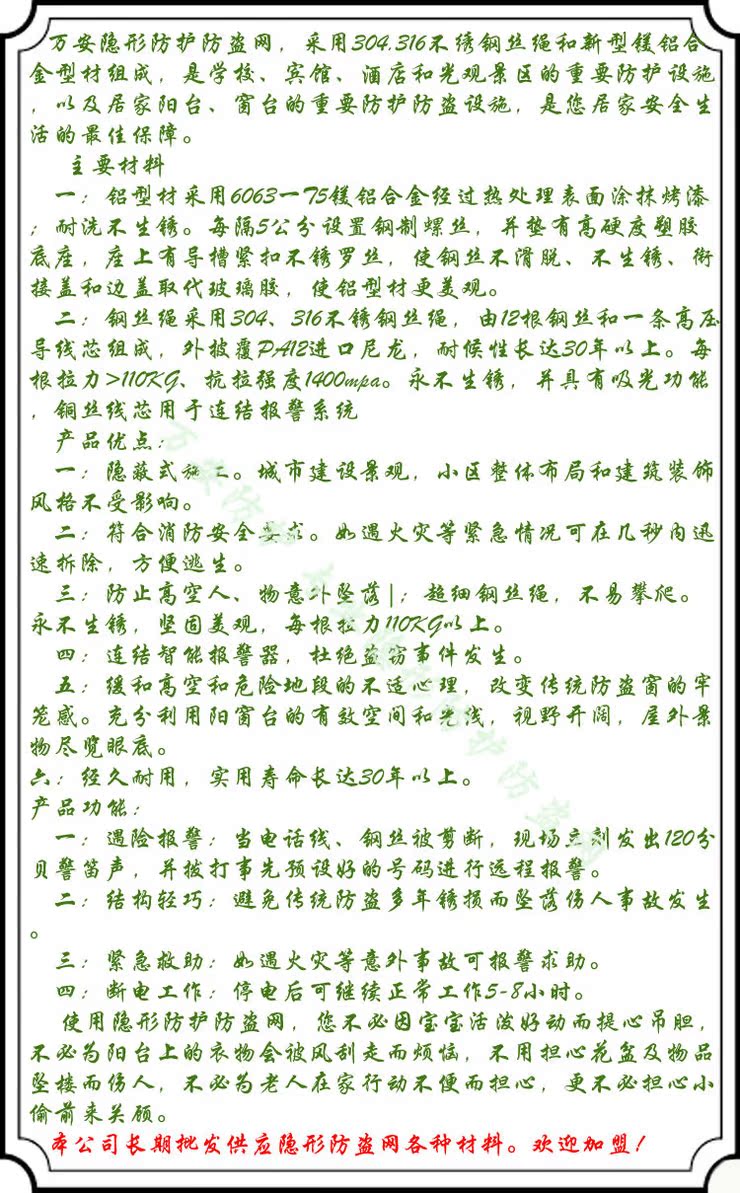 万安隐形防护防盗网，采用304.316不绣钢丝绳和新型镁铝合
金型材组成，是学校、宾馆、酒店和光观景区的重要防护设施
，以及居家阳台、窗台的重要防护防盗设施，是您居家安全生
活的最佳保障。
主要材料
一：铝型材采用6063一T5镁铝合金经过热处理表面涂抹烤漆
；耐洗不生锈。每隔5公分设置钢制螺丝，并垫有高硬度塑胶
底座，座上有导槽紧扣不锈罗丝，使钢丝不滑脱、不生锈、衔
接盖和边盖取代玻璃胶，使铝型材更美观。
二：钢丝绳采用304、316不锈钢丝绳，由12根钢丝和一条高压
导线芯组成，外披覆PA12进口尼龙，耐候性长达30年以上。每
根拉力>110KG、抗拉强度1400mpa。永不生锈，并具有吸光功能
，铜丝线芯用于连结报警系统
产品优点：
一：隐蔽式施工。城市建设景观，小区整体布局和建筑装饰
风格不受影响。
二：符合消防安全要求。如遇火灾等紧急情况可在几秒内迅
速拆除，方便逃生。
三：防止高空人、物意外坠落|；超细钢丝绳，不易攀爬。
永不生锈，坚固美观，每根拉力110KG以上。
四：连结智能报警器，杜绝盗窃事件发生。
五：缓和高空和危险地段的不适心理，改变传统防盗窗的牢
笼感。充分利用阳窗台的有效空间和光线，视野开阔，屋外景
物尽览眼底。
六：经久耐用，实用寿命长达30年以上。
产品功能：
一：遇险报警：当电话线、钢丝被剪断，现场立刻发出120分
贝警笛声，并拨打事先预设好的号码进行远程报警。
二：结构轻巧：避免传统防盗多年锈损而坠落伤人事故发生
。
三：紧急救助：如遇火灾等意外事故可报警求助。
四：断电工作：停电后可继续正常工作5-8小时。
使用隐形防护防盗网，您不必因宝宝活泼好动而提心吊胆，
不必为阳台上的衣物会被风刮走而烦恼，不用担心花盆及物品
坠楼而伤人，不必为老人在家行动不便而担心，更不必担心小
偷前来关顾。
本公司长期批发供应隐形防盗网各种材料。欢迎加盟！